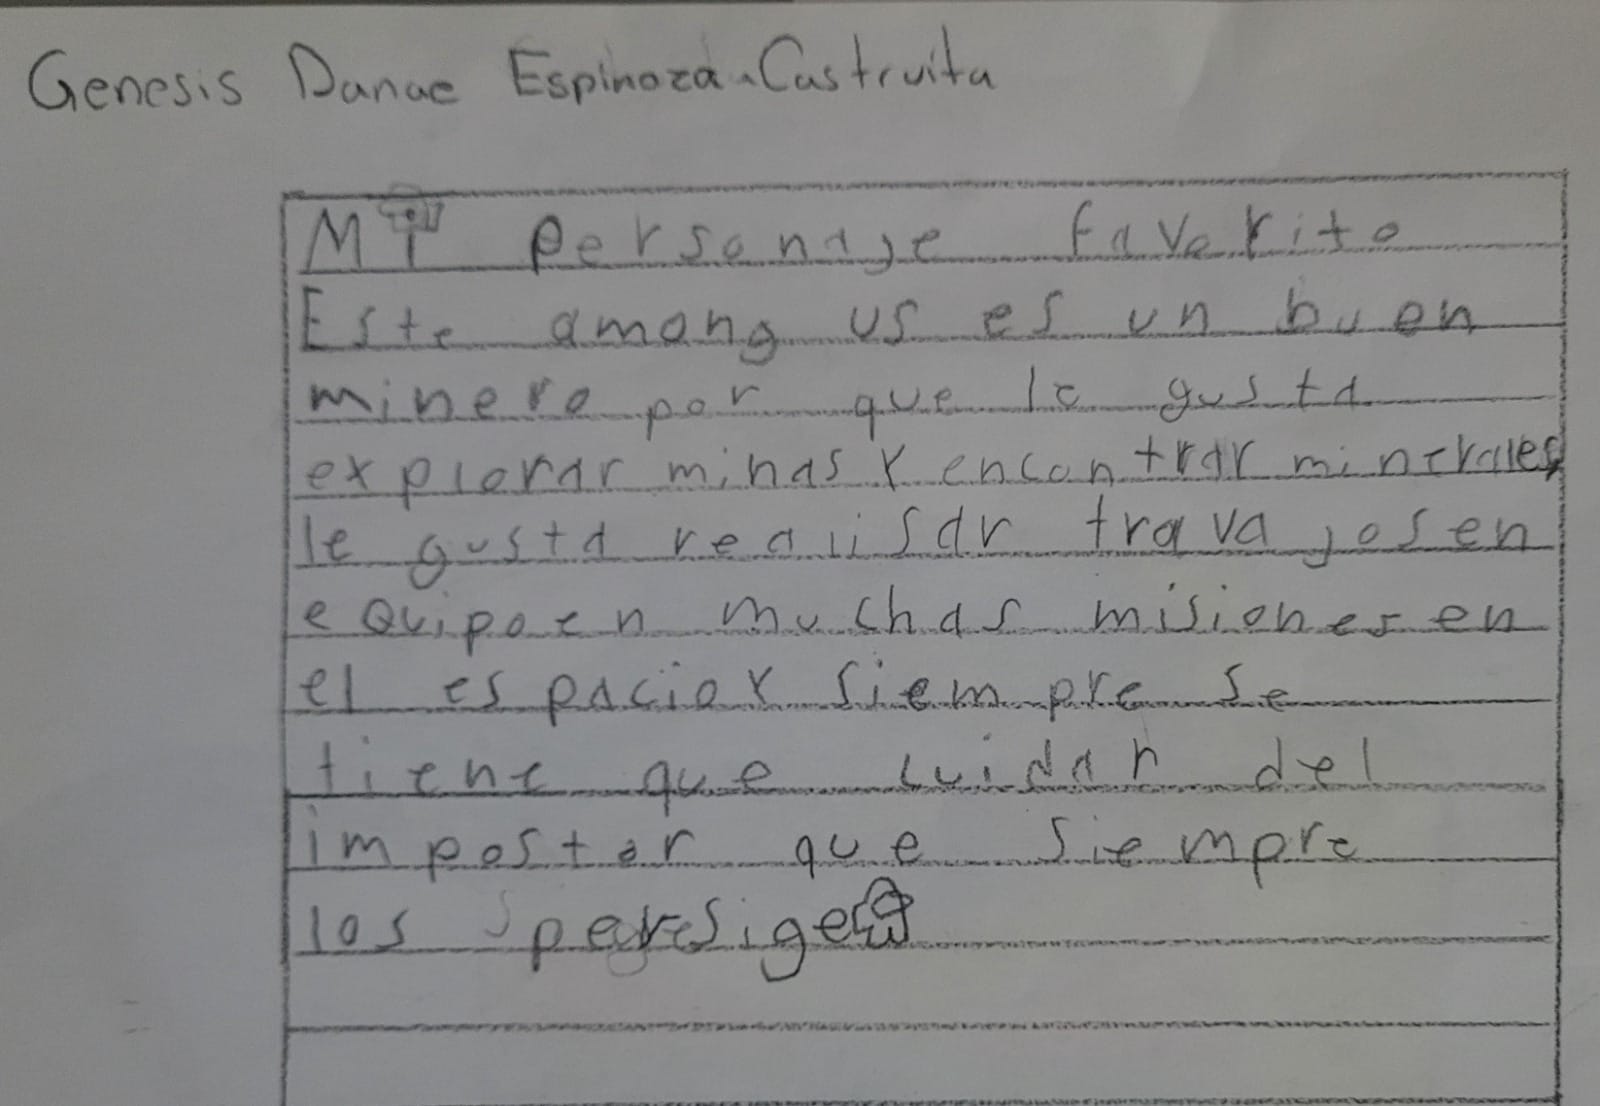 Genesis Danae Espinoza Castruita
MI personaje favorito
Este among us es un buen
minero por que le gusta
explorar minas y encontrar minerales
le gusta realisar trava josen
equipoen muchas misionesen
el espacioy siempre se
tiene que cuidar del
impostor que siempre
los persige